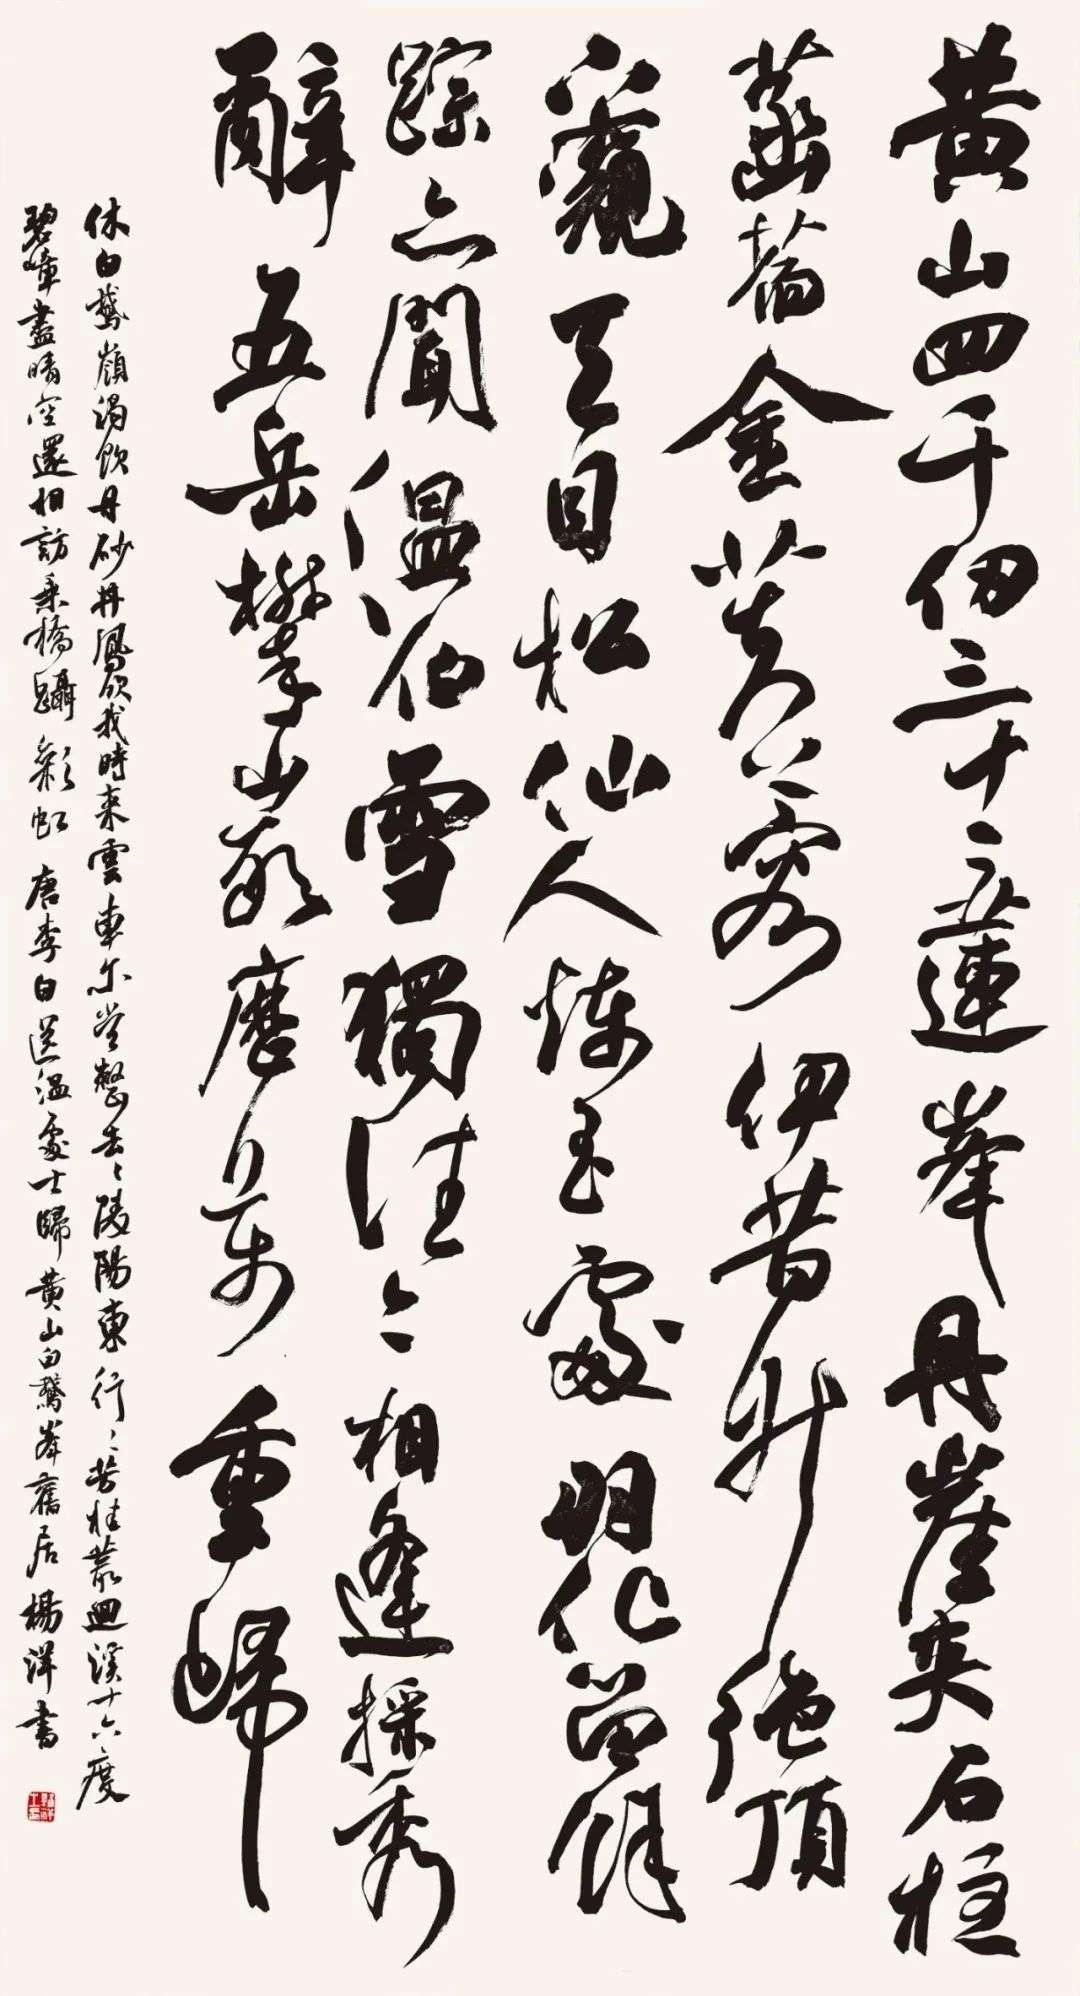 黄山四千仞三十二蓮峯丹崖夾石柱
菡萏金芙蓉伊昔升絶頂
下窺天目松仙人煉玉處羽化留餘
踪亦聞温伯雪獨往今相逢採秀
辭五岳攀巖歷萬重歸
休白鵝嶺渴飲丹砂井鳳吹我時來雲車尔當整去〻陵陽東行〻芳桂叢迴溪十六度
碧嶂盡晴空還相訪乘橋躡彩虹 唐李白送温處士歸黄山白鵝峯舊居 楊洋書